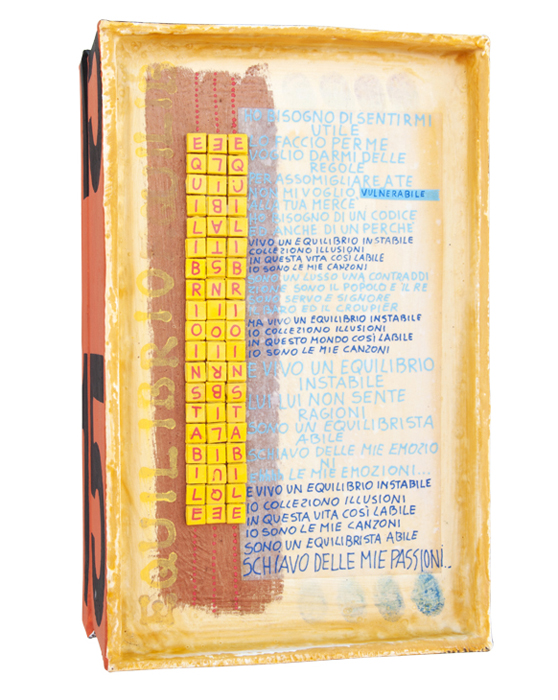 EQUILIBRIO
EQUILIBRIOINSTABILE
EQUILIBRIOINSTABILE
EQUILIBRIOINSTABILE
HO BISOGNO DI SENTIRMI
UTILE
LO FACCIO PER ME
VOGLIO DARMI DELLE
REGOLE
PER ASSOMIGLIARE A TE
NON MI VOGLIO VULNERABILE
ALLA TUA MERCE
HO BISOGNO DI UN CODICE
ED ANCHE DI UN PERCHE
VIVO UN EQUILIBRIO INSTABILE
COLLEZIONO ILLUSIONI
IN QUESTA VITA COSÌ LABILE
IO SONO LE MIE CANZONI
SONO UN LUSSO UNA CONTRADDI
ZIONE SONO IL POPOLO E IL RE
SONO SERVO E SIGNORE
BARO ED IL CROUPIER
MA VIVO UN EQUILIBRIO INSTABILE
IO COLLEZIONO ILLUSIONI
IN QUESTO MONDO COSÌ LABILE
IO SONO LE MIE CANZONI
E VIVO UN EQUILIBRIO
INSTABILE
LUI LUI NON SENTE
RAGIONI
SONO UN EQUILIBRISTA
ABILE
SCHIAVO DELLE MIE EMOZIO
NI
LE MIE EMOZIONI...
E VIVO UN EQUILIBRIO INSTABILE
IO COLLEZIONO ILLUSIONI
IN QUESTA VITA COSÌ LABILE
IO SONO LE MIE CANZONI
SONO UN EQUILIBRISTA ABILE
SCHIAVO DELLE MIE PASSIONI..